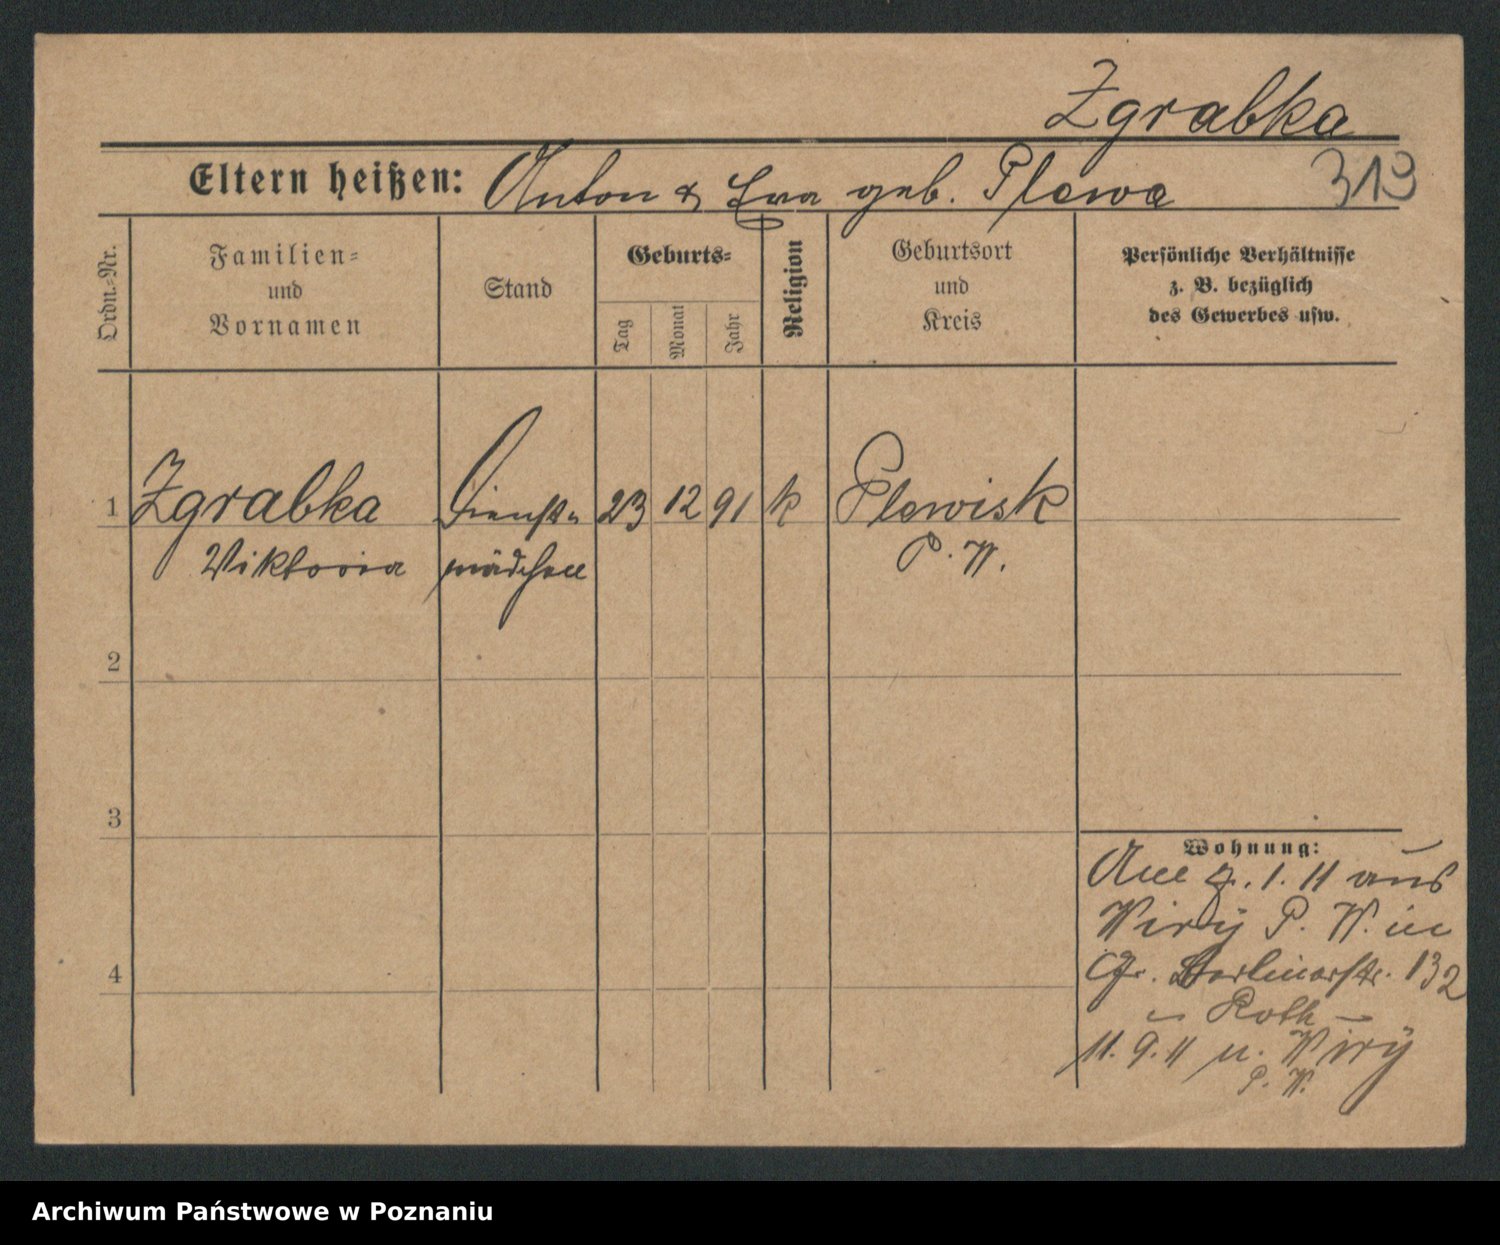 Zgrabka
Eltern heißen: Anton & Eva geb. Plewa 313
Ordn.-Nr.
Familien=
und
Vornamen
Stand
Geburts=
Tag
Monat
Jahr
Religion
Geburtsort
und
Kreis
Persönliche Verhältnisse
z. B. bezüglich
des Gewerbes usw.
1 Zgrabka Dienst= 23 12 91 k Plewisk
Viktoria mädchen P. W.
2
3
4
Wohnung:
1. 11 aus
Wiry P. W. in
Gr. Berlinerstr. 132
Roth
11. 9. 11 n. Wiry
P. W.
Archiwum Państwowe w Poznaniu